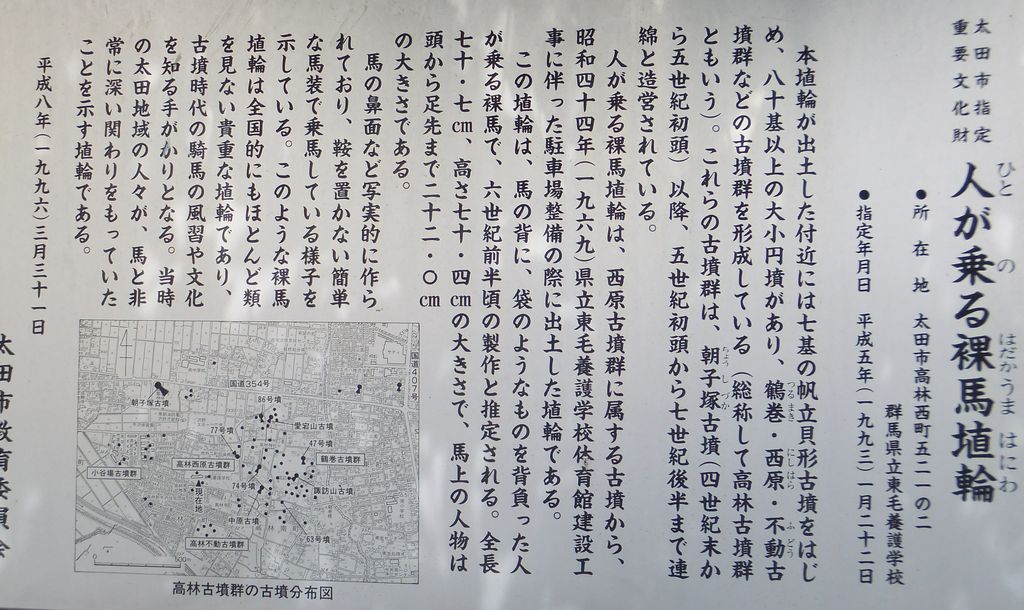 太田市指定
重要文化財
人が乗る裸馬埴輪
ひと の はだかうま はにわ
●所在地 太田市高林西町五二一の二
群馬県立東毛養護学校
●指定年月日 平成五年(一九九三)一月二十二日
本埴輪が出土した付近には七基の帆立貝形古墳をはじ
め、八十基以上の大小円墳があり、鶴巻・西原・不動古
つるまき にしはら ふどう
墳群などの古墳群を形成している(総称して高林古墳群
ともいう)。これらの古墳群は、朝子塚古墳(四世紀末か
ちょうしづか
ら五世紀初頭)以降、五世紀初頭から七世紀後半まで連
綿と造営されている。
人が乗る裸馬埴輪は、西原古墳群に属する古墳から、
昭和四十四年(一九六九)県立東毛養護学校体育館建設工
事に伴った駐車場整備の際に出土した埴輪である。
この埴輪は、馬の背に、袋のようなものを背負った人
が乗る裸馬で、六世紀前半頃の製作と推定される。全長
七十・七cm、高さ七十・四cmの大きさで、馬上の人物は
頭から足先まで二十二・〇cm
の大きさである。
馬の鼻面など写実的に作ら
れており、鞍を置かない簡単
な馬装で乗馬している様子を
示している。このような裸馬
埴輪は全国的にもほとんど類
を見ない貴重な埴輪であり、
古墳時代の騎馬の風習や文化
を知る手がかりとなる。当時
の太田地域の人々が、馬と非
常に深い関わりをもっていた
ことを示す埴輪である。
平成八年(一九九六)三月三十一日
太田市教育委員会
国道407号
国道354号
朝子塚古墳
86号墳
愛宕山古墳
77号墳
47号墳
鶴巻古墳群
高林西原古墳群
小谷場古墳群
諏訪山古墳
74号墳
現在地
中原古墳
63号墳
高林不動古墳群
高林古墳群の古墳分布図